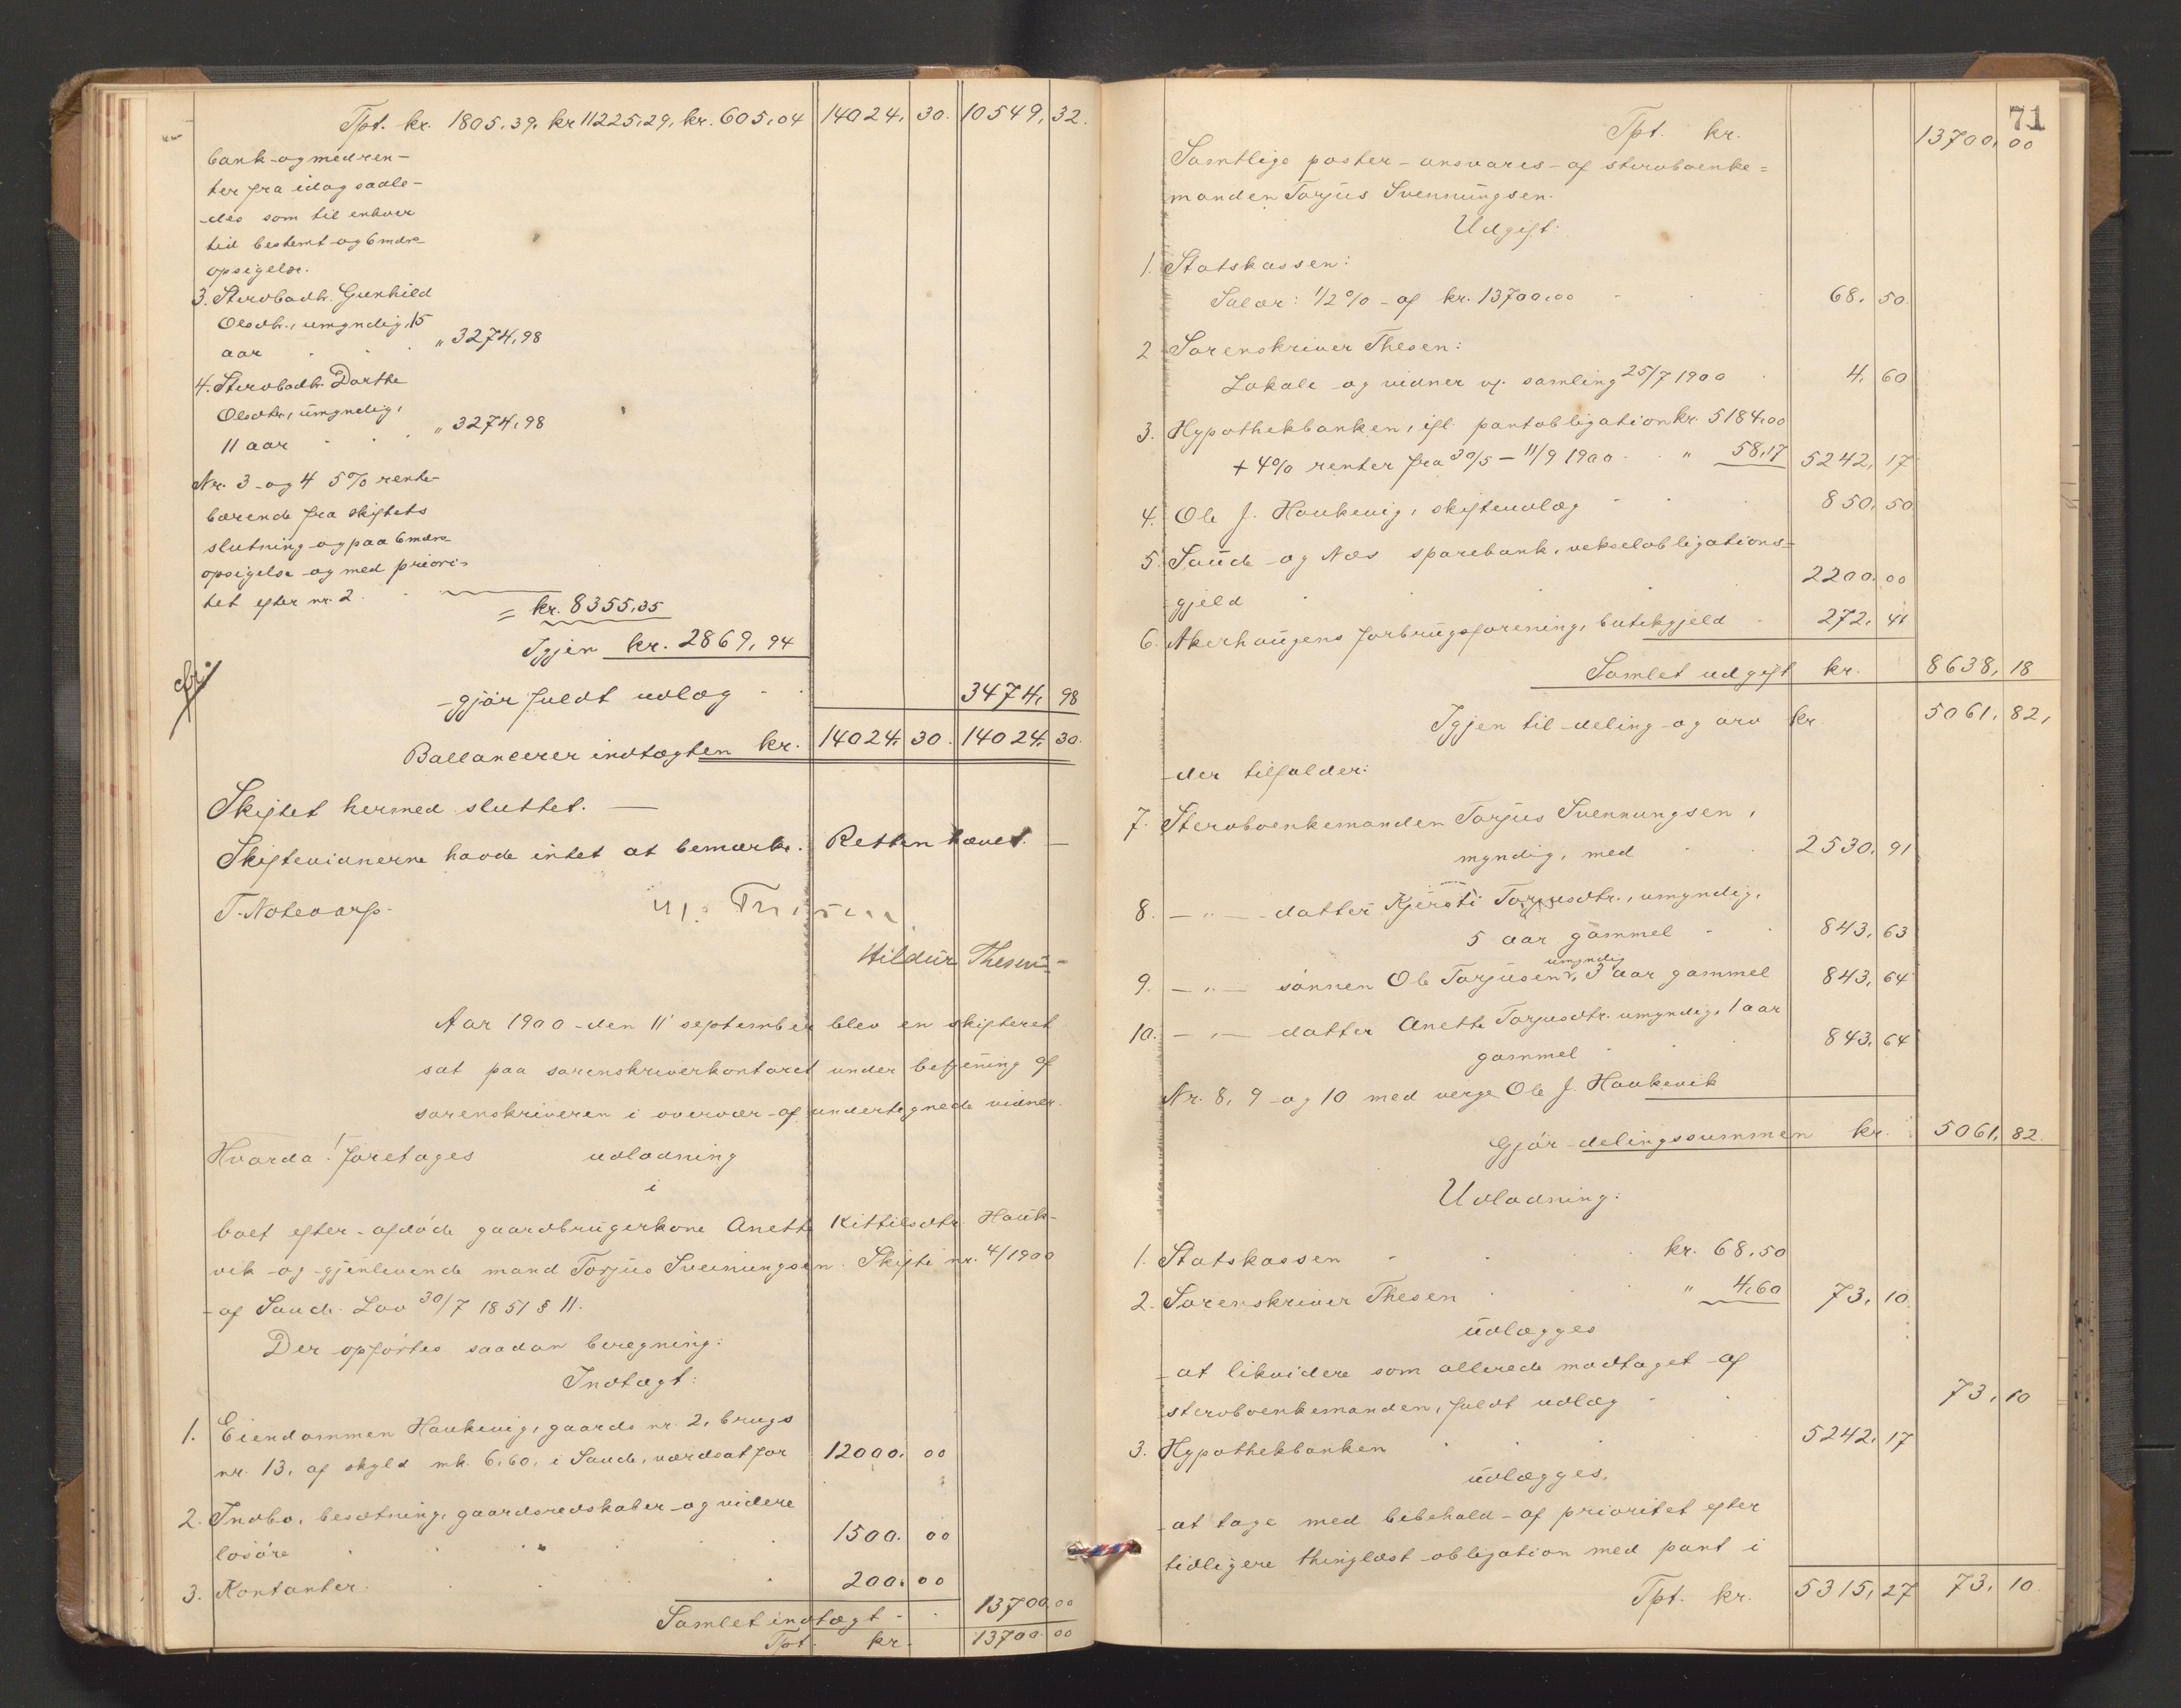 Tpt. kr. 1805,39, kr 11225,29, kr. 605,04 14024, 30. 10549, 32.
bank og med ren-
ter fra idag saale-
des som til enhver
tid bestemt og 6 mdrs
opsigelse.
3. Stervbodtr. Gunhild
Olsdtr., umyndig, 15
aar . . . " 3274,98
4. Stervbodtr. Dorthe
Olsdtr., umyndig,
11 aar . . . " 3274,98
Nr. 3 og 4 5% rente-
bærende fra skiftets
slutning og paa 6 mdrs
opsigelse og med priori-
tet efter nr. 2.
= kr. 8355,35
Igjen kr. 2869,94
gjør fuldt udlæg - . 3474, 98
Ballancerer indtægten kr. 14024, 30. 14024, 30.
Skiftet hermed sluttet. —
Skiftevidnerne havde intet at bemærke. Retten hævet. —
T. Notevarp.
Hildur Thesen
Aar 1900 den 11 september blev en skifteret
sat paa sorenskriverkontoret under betjening af
sorenskriveren i overvær af undertegnede vidner.
Hvorda! foretages udlodning
i
boet efter afdøde gaardbrugerkone Anette Kittilsdtr. Hauk-
vik og gjenlevende mand Torjus Sveinungsen. Skifte nr. 4/1900
af Saude. Lov 30/7 1851 § 11.
Der opførtes saadan beregning:
Indtægt:
1. Eiendommen Haukevig, gaards nr. 2, brugs
nr. 13, af skyld mk. 6,60, i Saude, værdsat for 12000, 00
2. Indbo, besætning, gaardsredskaber og videre
løsøre . . . . 1500, 00
3. Kontanter. . . . 200, 00
Samlet indtægt - . 13700,00
Tpt. kr. 13700,00
71
Tpt. kr. 13700, 00
Samtlige poster ansvares af stervboenke=
manden Torjus Svennungsen.
Udgift:
1. Statskassen:
Salær: 1/2% af kr. 13700,00 - . . 68, 50
2 Sorenskriver Thesen:
Lokale og vidner v. samling 25/7 1900 . 4, 60
3. Hypothekbanken, ifl. pantobligation kr. 5184,00
+ 4% renter fra 30/5 - 11/9 1900 . . " 58,17 5242, 17
4. Ole J. Haukevig, skifteudlæg - . . 850, 50
5. Saude og Nes sparebank, vekselobligations=
gjeld . . . . 2200, 00
6. Akerhaugens forbrugsforening, butikgjeld . 272, 41
Samlet udgift kr. 8638, 18
Igjen til deling og arv kr. 5061, 82,
der tilfalder:
7. Stervboenkemanden Torjus Svennungsen,
myndig, med . . 2530, 91
8. — " — datter Kjersti Torjusdtr., umyndig,
5 aar gammel . . 843, 63
umyndig
9. — " — sønnen Ole Torjusen v, 3 aar gammel 843, 64
10. — " — datter Anette Torjusdtr. umyndig, 1 aar
gammel . . . 843, 64
Nr. 8, 9 og 10 med verge Ole J. Haukevik
Gjør delingssummen kr. 5061, 82.
Udlodning:
1. Statskassen . . . kr. 68,50
2. Sorenskriver Thesen . . " 4,60 73, 10
udlægges
at likvidere som allerede modtaget af
stervboenkemanden, fuldt udlæg . . 73, 10
3. Hypothekbanken . . . 5242, 17
udlægges,
at tage med bibehold af prioritet efter
tidligere thinglæst obligation med pant i
Tpt. kr. 5315, 27 73, 10